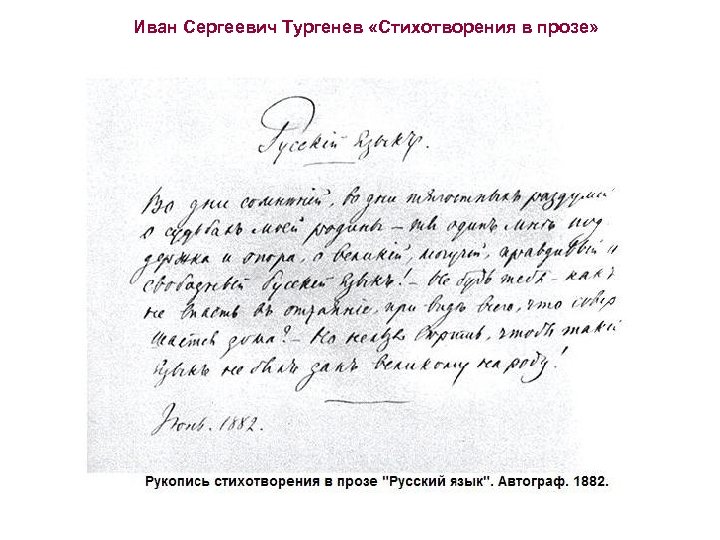 Иван Сергеевич Тургенев «Стихотворения в прозе»
Русскій языкъ.
Во дни сомнѣній, во дни тягостныхъ раздумій
о судьбахъ моей родины – ты одинъ мнѣ под
держка и опора, о великій, могучій, правдивый и
свободный Русскій языкъ! – Не будь тебя – какъ
не впасть въ отчаяніе, при видѣ всего, что совер
шается дома? – Но нельзя вѣрить, чтобы такой
языкъ не былъ данъ великому народу!
Іюнь. 1882.
Рукопись стихотворения в прозе "Русский язык". Автограф. 1882.